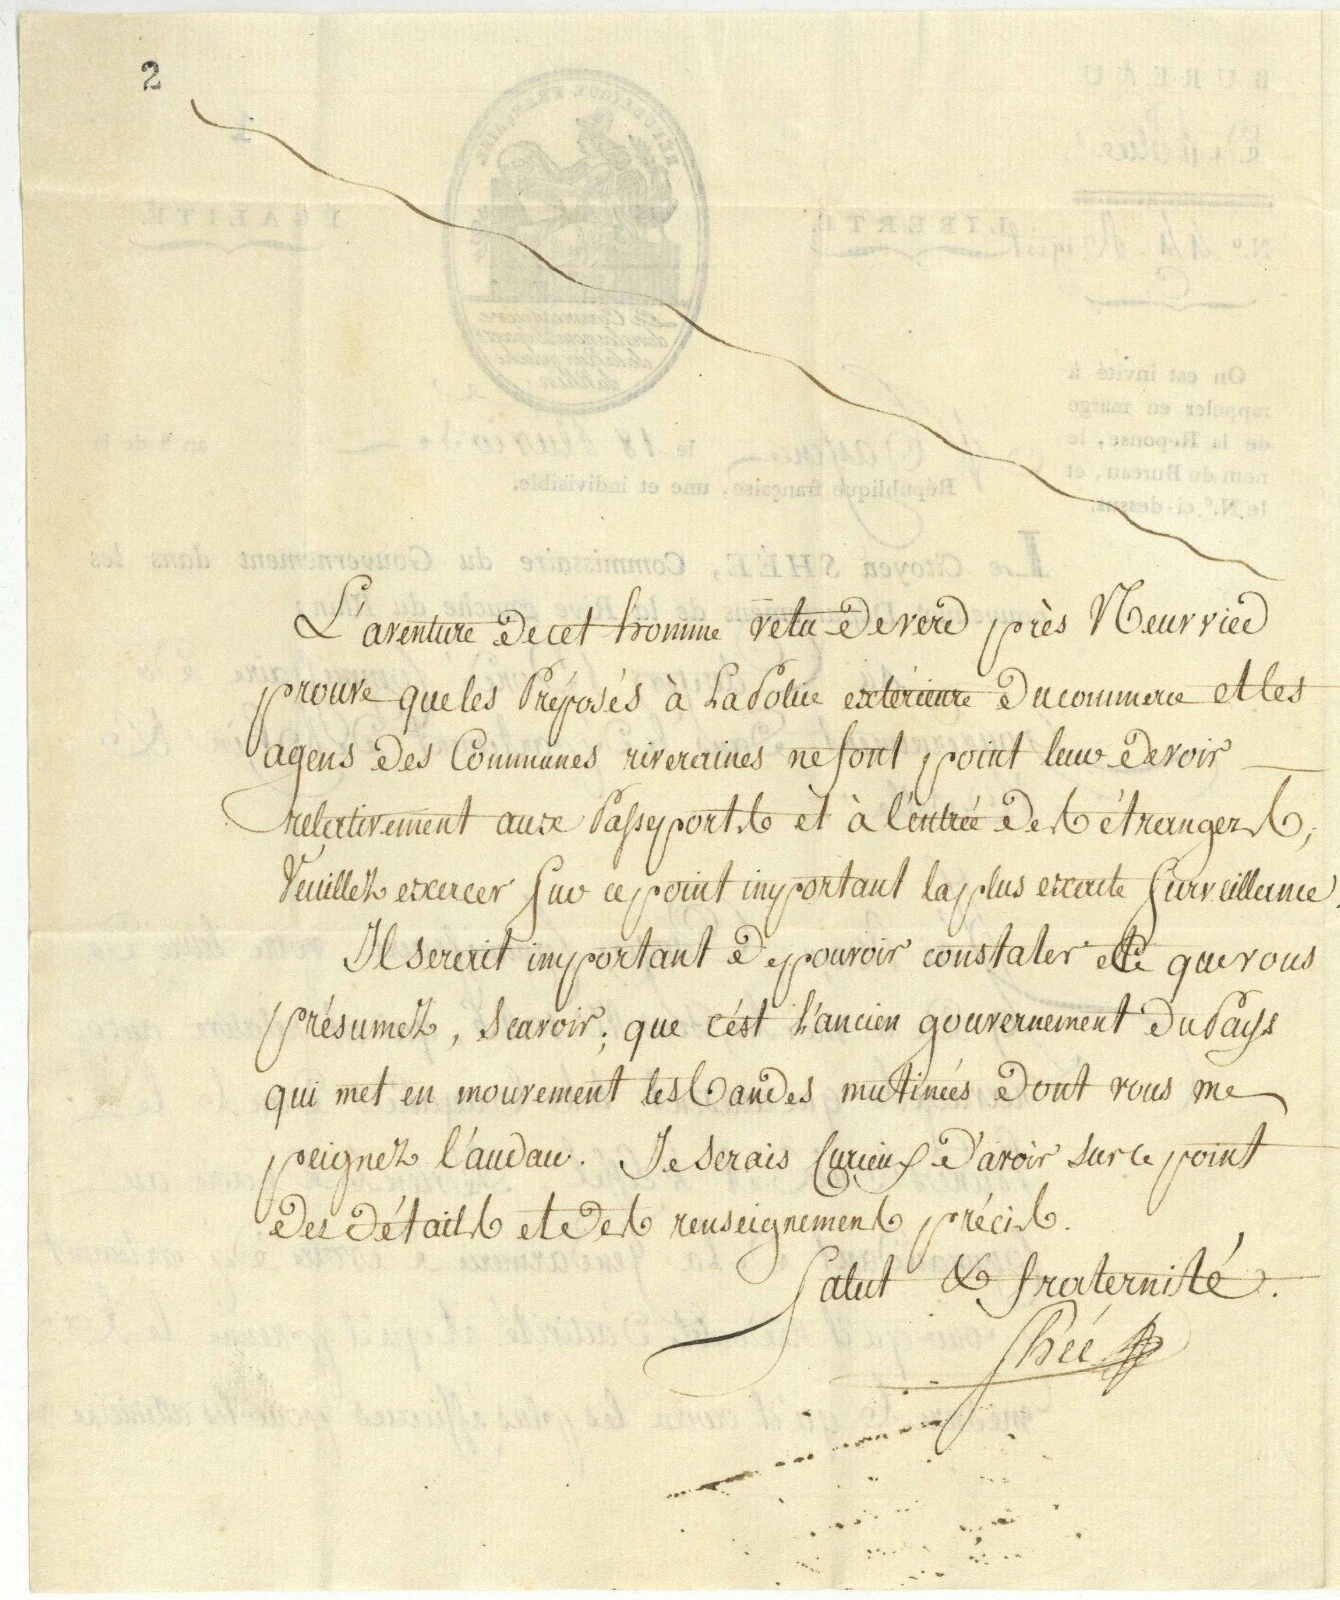 2
L'aventure de cet homme vetu de verd près Neuvried
prouve que les Préposés à La Police extérieure du commerce et les
agens des Communes riveraines ne font point leur devoir
relativement aux Passeports et à l'entrée des étrangers,
Veuillez exercer sur ce point important la plus exacte surveillance.
Il seroit important de pouvoir constater ce que vous
présumez, scavoir; que c'ést l'ancien gouvernement du Pays
qui met en mouvement les bandes mutinées dont vous me
peignez l'audace. Je serais curieux d'avoir sur ce point
des détails et des renseignemens précis.
Salut & fraternité.
Shée